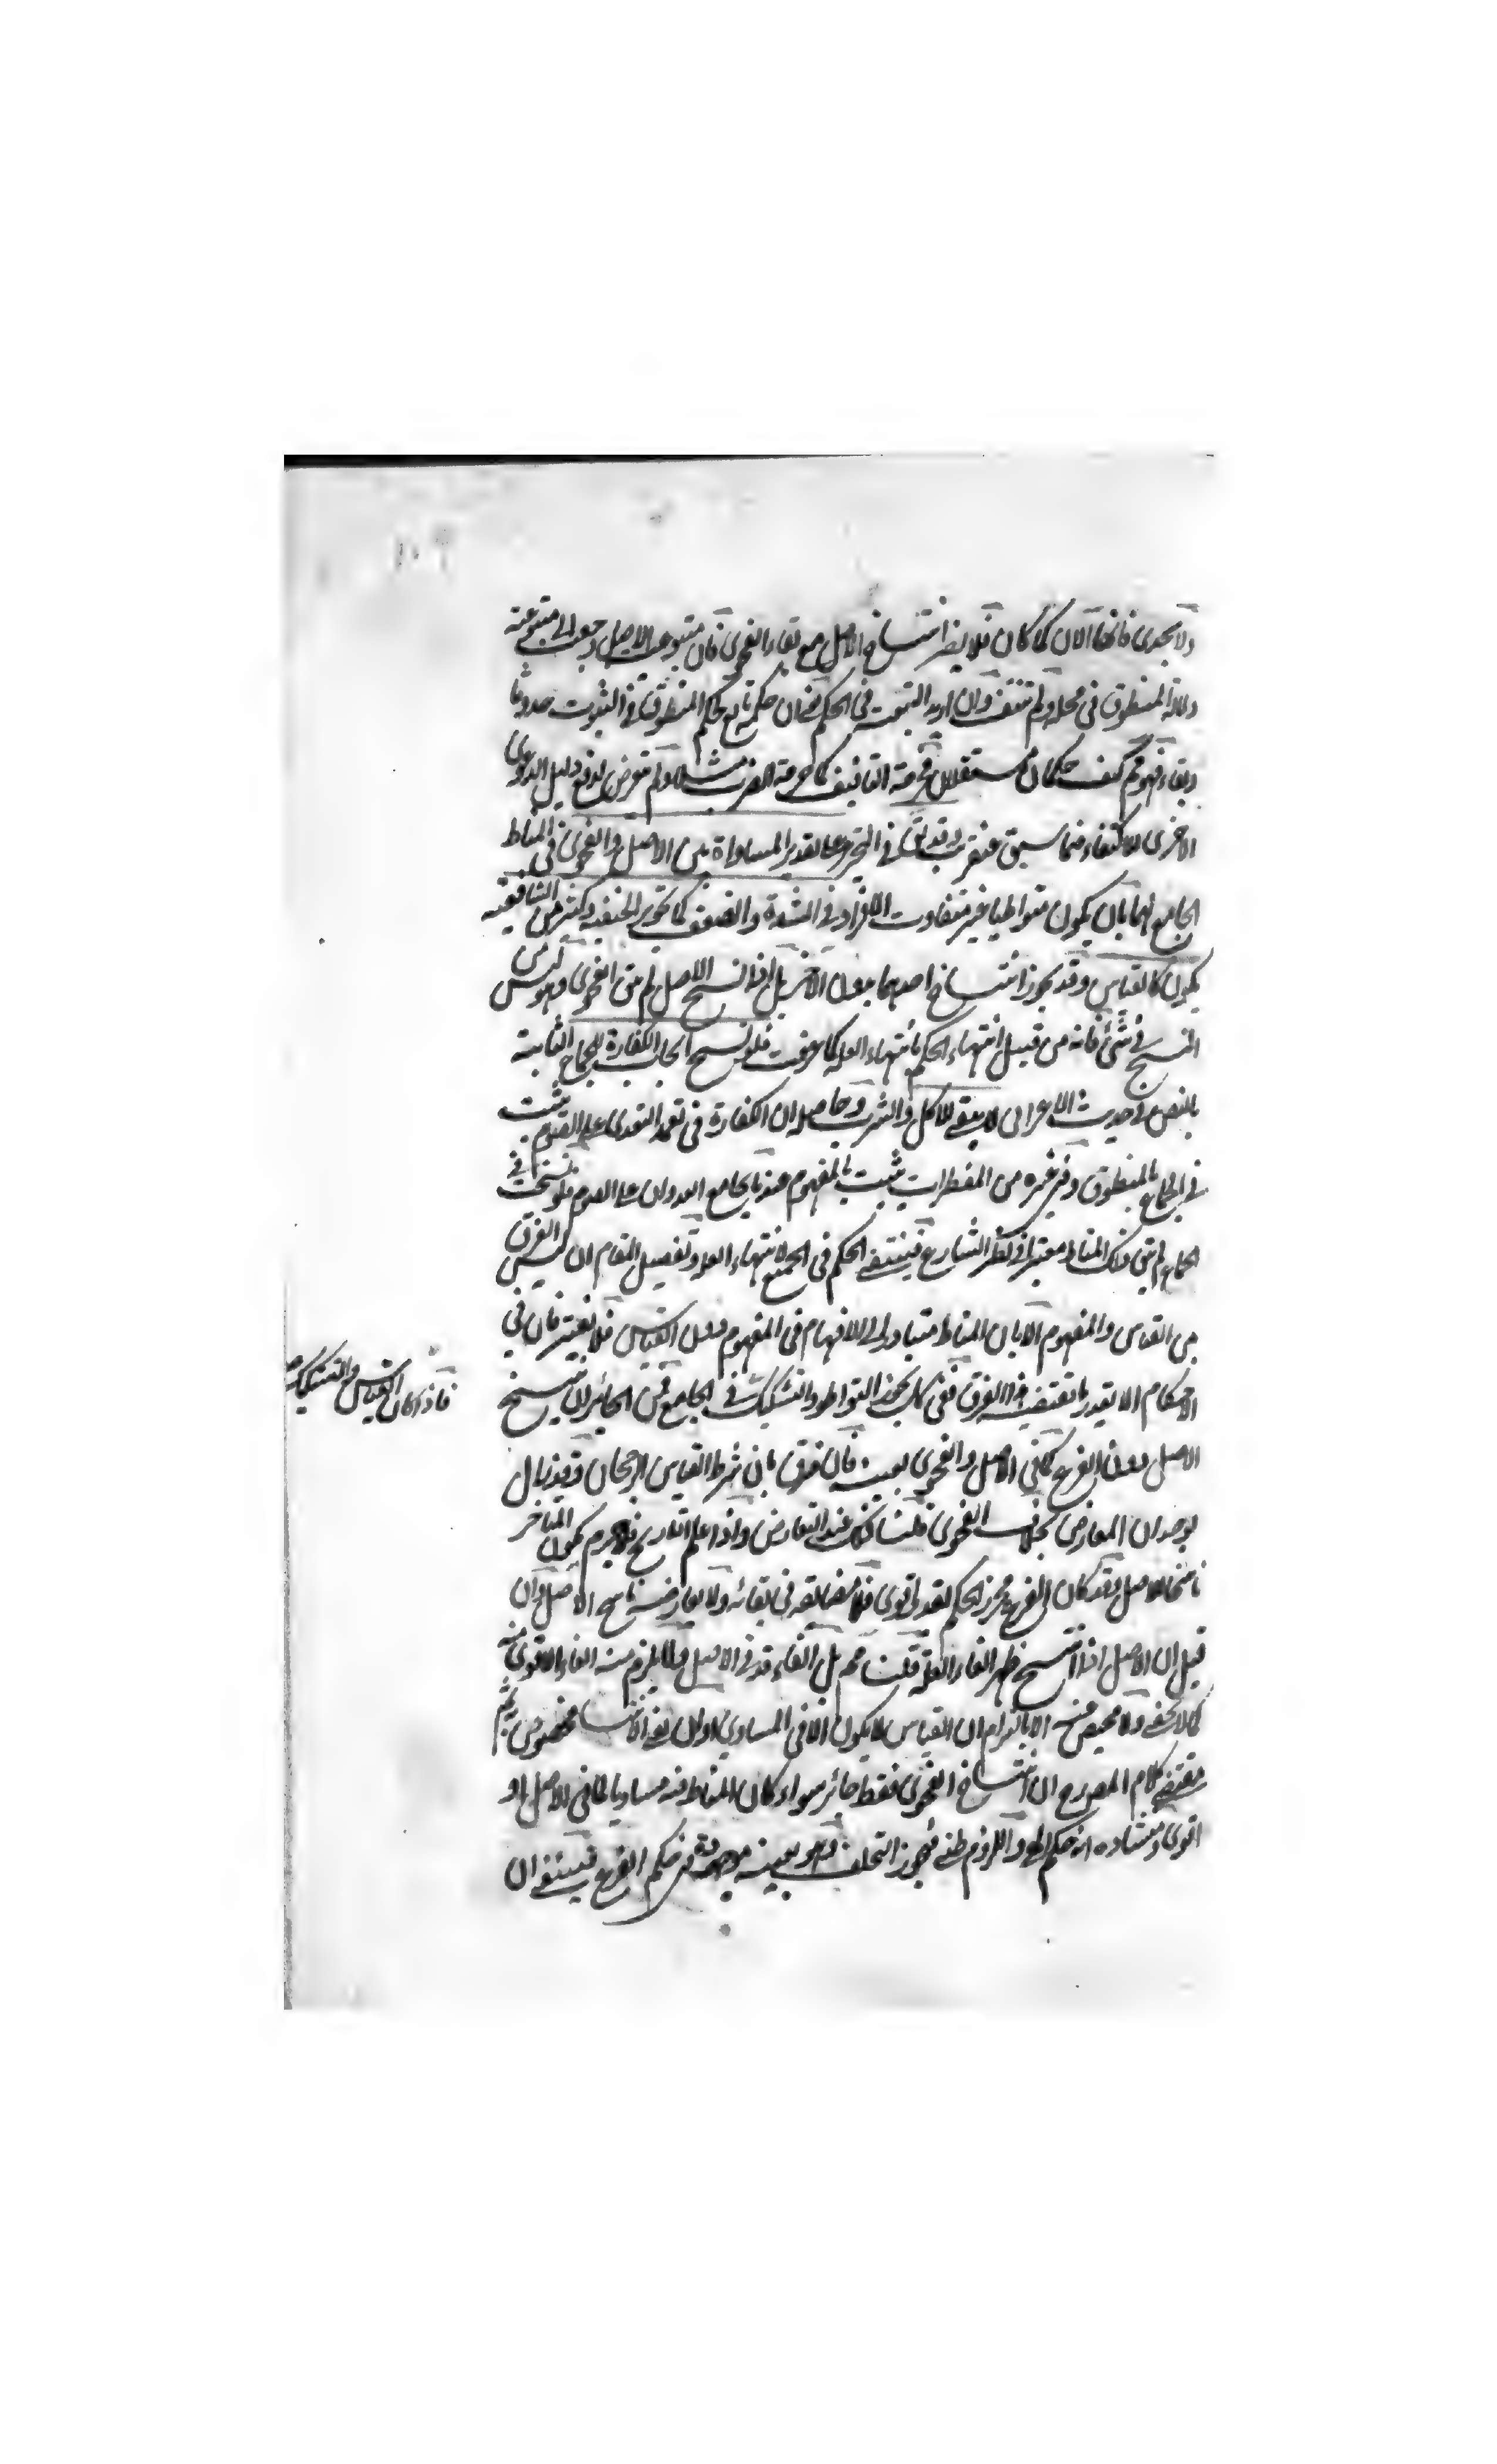 ولا يجدى فانها الان كما كان فلا يضر انتساخ الاصل مع بقاء الفحوى فان متبوعية الاصل رجعت الى متبوعية
دلالة المنطوق فى محله ولم تنتف وان اريد التبعية فى الحكم بمعنى ان حكمه تابع لحكم المنطوق فى الثبوت حدوثا
وبقاء فهو كيف حكمان مستقلان حرمة التافيف كحرمة الضرب مثلا ولم يتعرض لدفع دليل الدعوى
الاخرى للاكتفاء فيما سبق وقد يق فى التحرير على تقدير المساواة بين الاصل والفحوى فى المناط
الجامع لهما بان يكون متواطيا غير متفاوت الافراد فى الشدة والضعف كما تجويز الحنفية وكثير من الشافعية
يكون كالقياس وقد يجوز انتساخ احدهما بدون الاخر بل اذا نسخ الاصل لم يبق الفحوى وهو ليس من
النسخ فى شئ فانه من قبيل انتهاء الحكم بانتهاء العلة كما عرفت فلو نسخ ايجاب الكفارة للجماع الثابتة
بالنص فى حديث الاعرابى لا يبقى للاكل والشرب وحاصله ان الكفارة فى تعمد التعدى على الصوم يثبت
فى الجماع بالمنطوق وفى غيره من المفطرات يثبت بالمفهوم عندنا بجامع العدوان على الصوم فلو نسخت فى
الجماع لم يبق ذلك المناط معتبرا فى نظر الشارع فينتفى الحكم فى الجميع لانتهاء العلة وتفصيل المقام ان ليس الفرق
بين القياس والمفهوم الا بان المناط متبادر الى الافهام فى المفهوم دون القياس فلا يفترقان فى
الاحكام الا بقدر ما يقتضيه هذا الفرق ففى كل يجوز التواطؤ والتشكيك فى الجامع فمن الجائز ان ينسخ
فاذا كان القياس والتشكيك
الاصل دون الفرع كما فى الاصل والفحوى بعينه فان فرق بان شرط القياس الرجحان وقد زال
بوجدان المعارض بخلاف الفحوى قلنا ذلك عند التعارض واذا علم التاريخ فلا جرم يكون المتاخر
ناسخا للاصل وقد كان الفرع محرز الحكم لقدر اقوى فلا مضايقة فى بقائه ولا يعارضه ناسخ الاصل وان
قيل ان الاصل اذا انتسخ ظهر الغاء العلة قلنا مم بل الغاء قدر فى الاصل ولا يلزم منه الغاء الاقوى منه
كما لا يخفى ولا محيص منه الا بالتزام ان القياس لا يكون الا فى المساوى او ان بقى الانتساخ مخصوص ثم
مقتضى كلام المصرح ان انتساخ الفحوى فقط جائز سواء كان المناط فيه مساويا لما فى الاصل او
اقوى ومستنده ان حكم اللزوم ظنى فيجوز التخلف وهو بعينه موجود فى حكم الفرع فينبغى ان